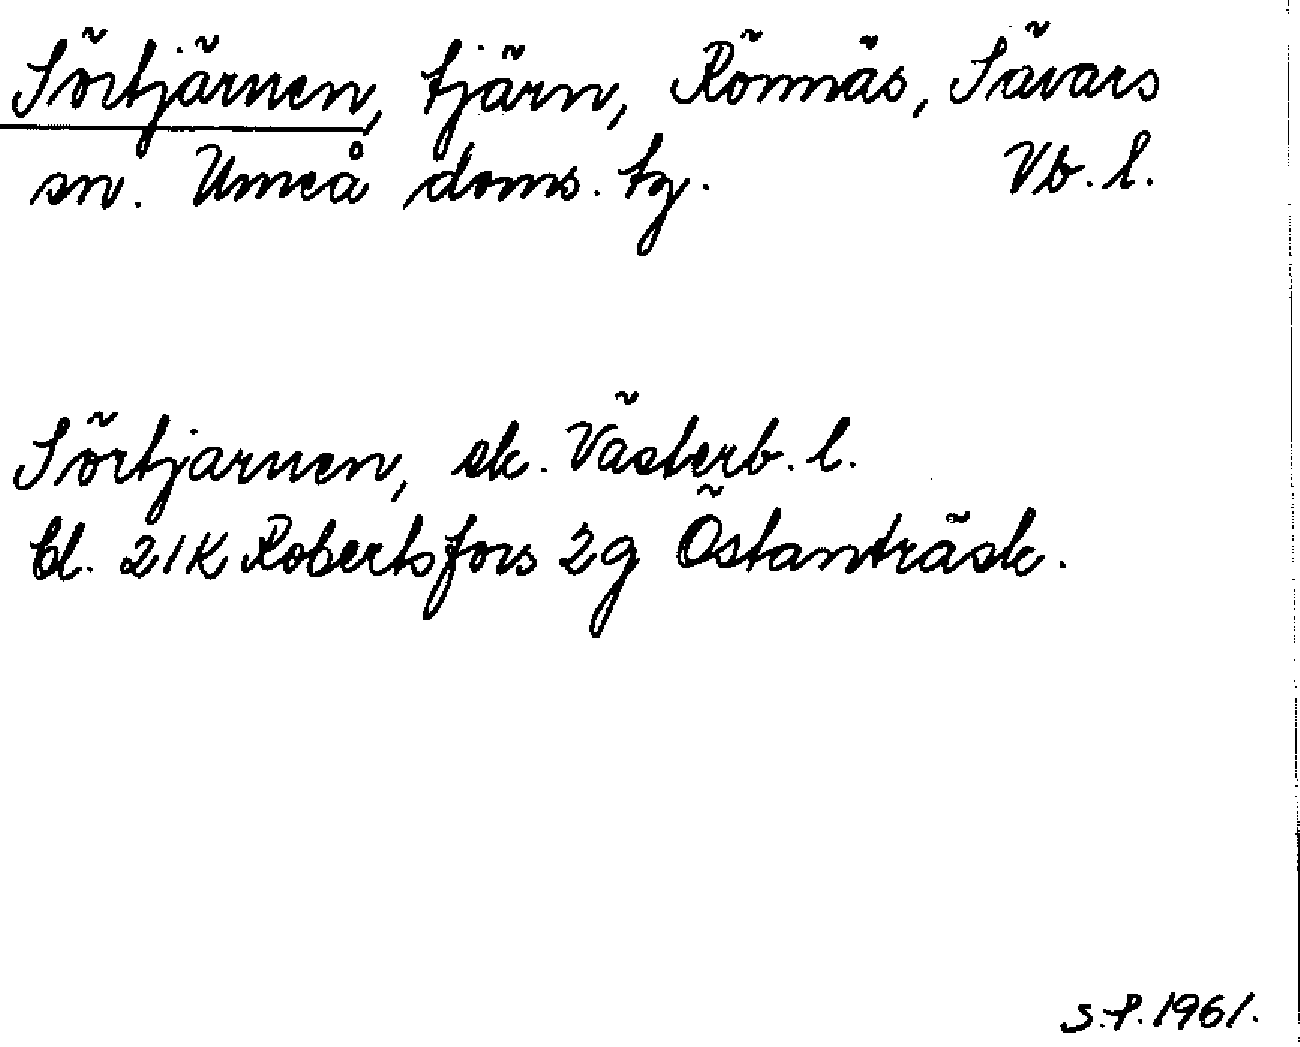 Sörtjärnen, tjärn, Rönnäs, Sävars
sn. Umeå doms. tg. Vb. l.
Sörtjarnen, ek. Västerb. l.
bl. 21K Robertsfors 2g Östanträsk.
S.P. 1961.